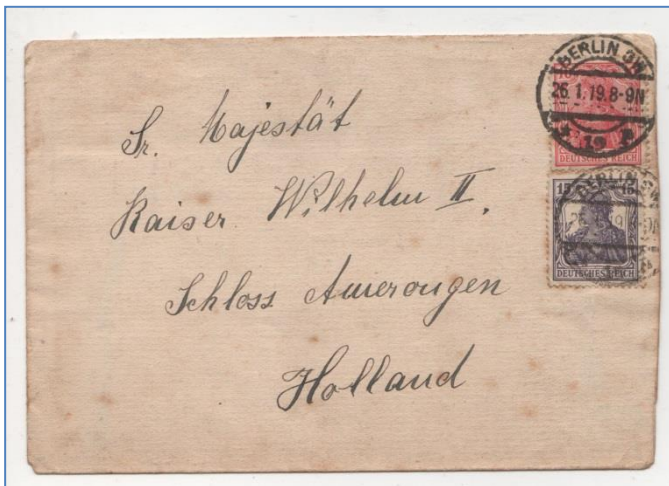 BERLIN SW
26.1.19.8-9N
* 19 a
10
DEUTSCHES REICH
BERLIN SW
15 15
DEUTSCHES REICH
Sr. Majestät
Kaiser Wilhelm II.
Schloss Amerongen
Holland